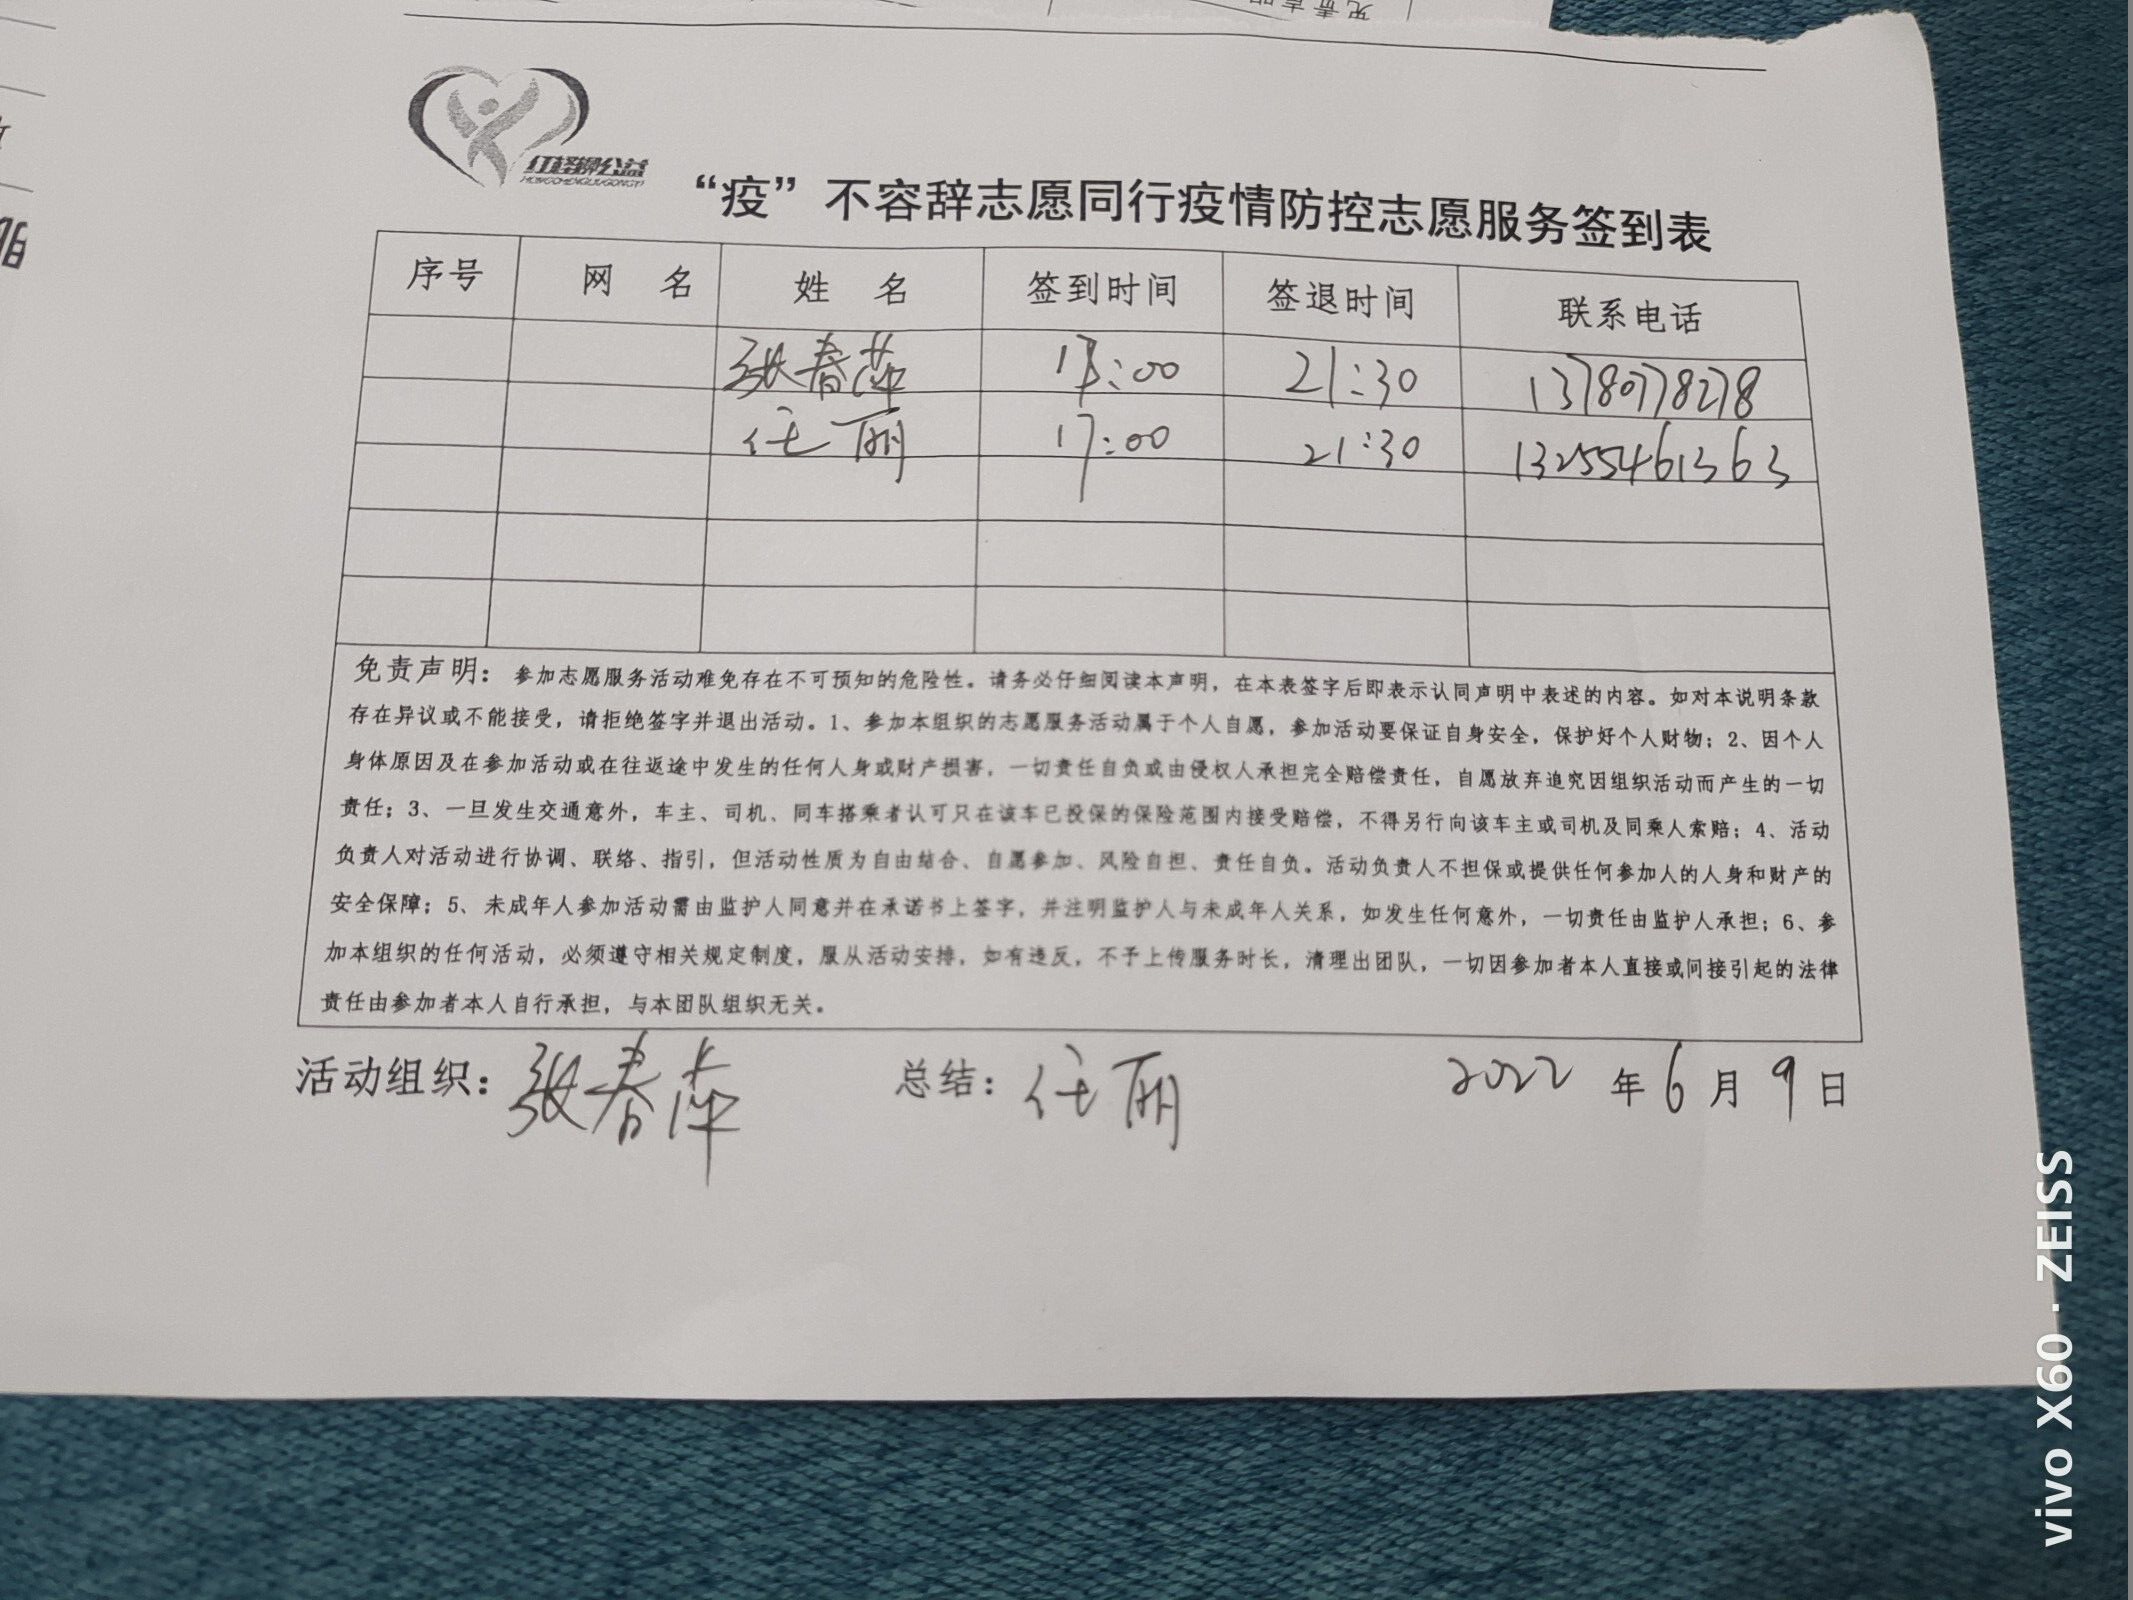 免责声明
明
红橙柳公益
HONGCHENGLIUGONGYI
“疫”不容辞志愿同行疫情防控志愿服务签到表
序号 网 名 姓 名 签到时间 签退时间 联系电话
张春萍 17:00 21:30 13780778278
任丽 17:00 21:30 13255461363
免责声明：参加志愿服务活动难免存在不可预知的危险性。请务必仔细阅读本声明，在本表签字后即表示认同声明中表述的内容。如对本说明条款
存在异议或不能接受，请拒绝签字并退出活动。1、参加本组织的志愿服务活动属于个人自愿，参加活动要保证自身安全，保护好个人财物；2、因个人
身体原因及在参加活动或在往返途中发生的任何人身或财产损害，一切责任自负或由侵权人承担完全赔偿责任，自愿放弃追究因组织活动而产生的一切
责任；3、一旦发生交通意外，车主、司机、同车搭乘者认可只在该车已投保的保险范围内接受赔偿，不得另行向该车主或司机及同乘人索赔；4、活动
负责人对活动进行协调、联络、指引，但活动性质为自由结合、自愿参加、风险自担、责任自负。活动负责人不担保或提供任何参加人的人身和财产的
安全保障；5、未成年人参加活动需由监护人同意并在承诺书上签字，并注明监护人与未成年人关系，如发生任何意外，一切责任由监护人承担；6、参
加本组织的任何活动，必须遵守相关规定制度，服从活动安排，如有违反，不予上传服务时长，清理出团队，一切因参加者本人直接或间接引起的法律
责任由参加者本人自行承担，与本团队组织无关。
活动组织：张春萍 总结：任丽 2022 年 6 月 9 日
vivo X60 · ZEISS